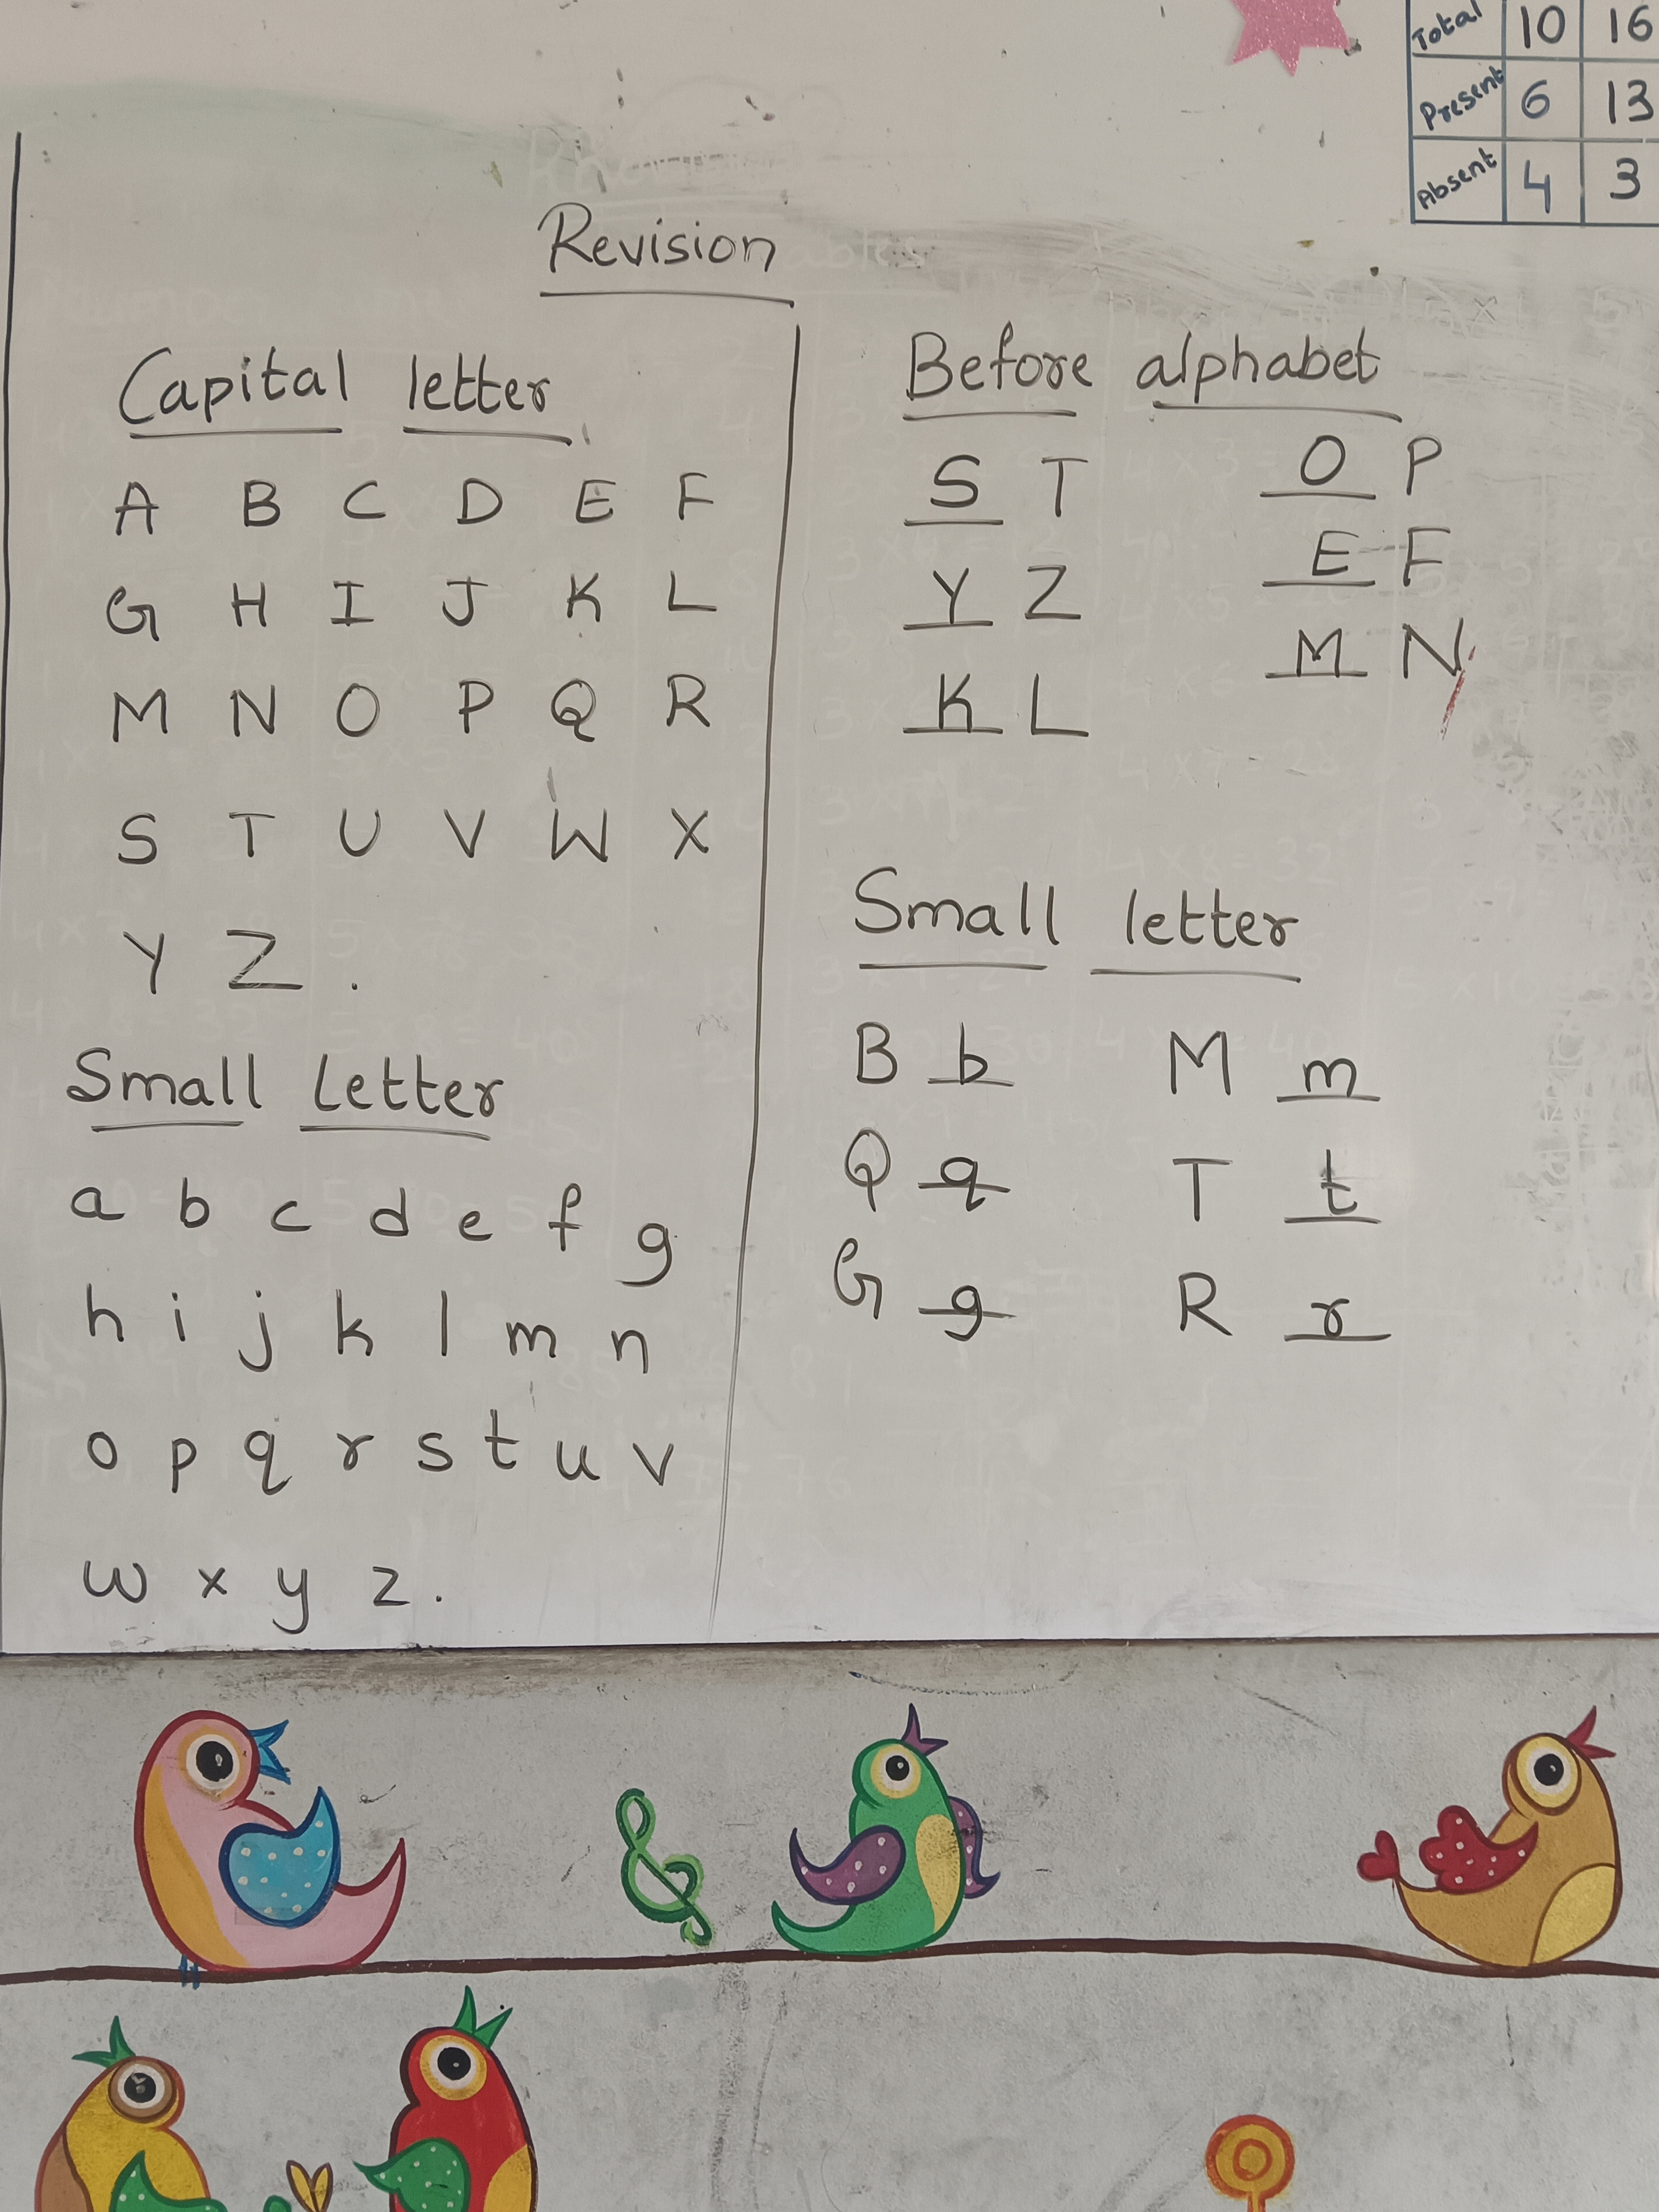 Total 10 16
Present 6 13
Absent 4 3
Revision
Capital letter
A B C D E F
G H I J K L
M N O P Q R
S T U V W X
Y Z .
Small letter
a b c d e f g
h i j k l m n
o p q r s t u v
w x y z .
Before alphabet
S T O P
Y Z E F
K L M N
Small letter
B b M m
Q q T t
G g R r